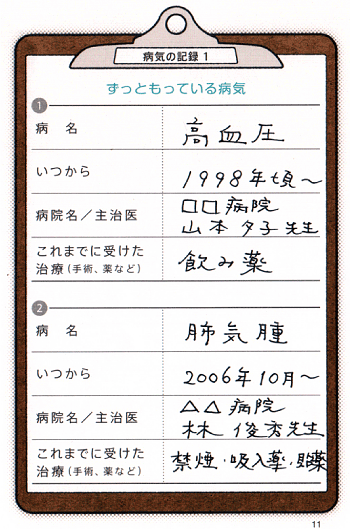 病気の記録 1
ずっともっている病気
1
病 名
高血圧
いつから
1998年頃~
病院名／主治医
□□病院
山本夕子先生
これまでに受けた
治療(手術、薬など)
飲み薬
2
病 名
肺気腫
いつから
2006年10月~
病院名／主治医
△△病院
林 俊秀先生
これまでに受けた
治療(手術、薬など)
禁煙・吸入薬・貼薬
11